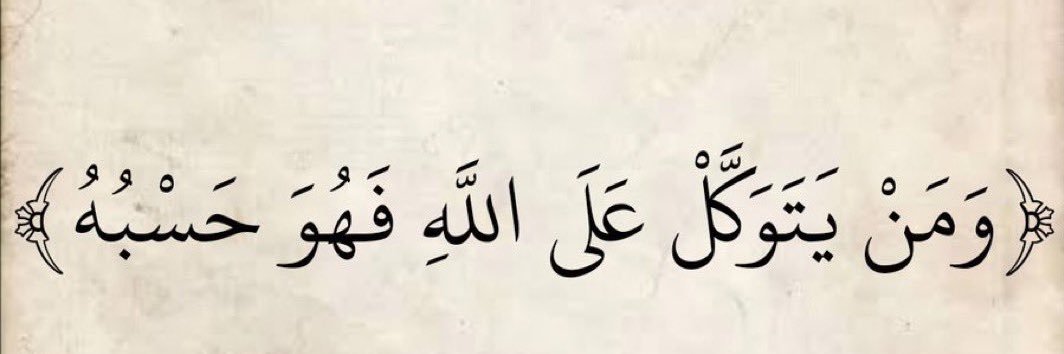 ﴿وَمَنْ يَتَوَكَّلْ عَلَى اللَّهِ فَهُوَ حَسْبُهُ﴾